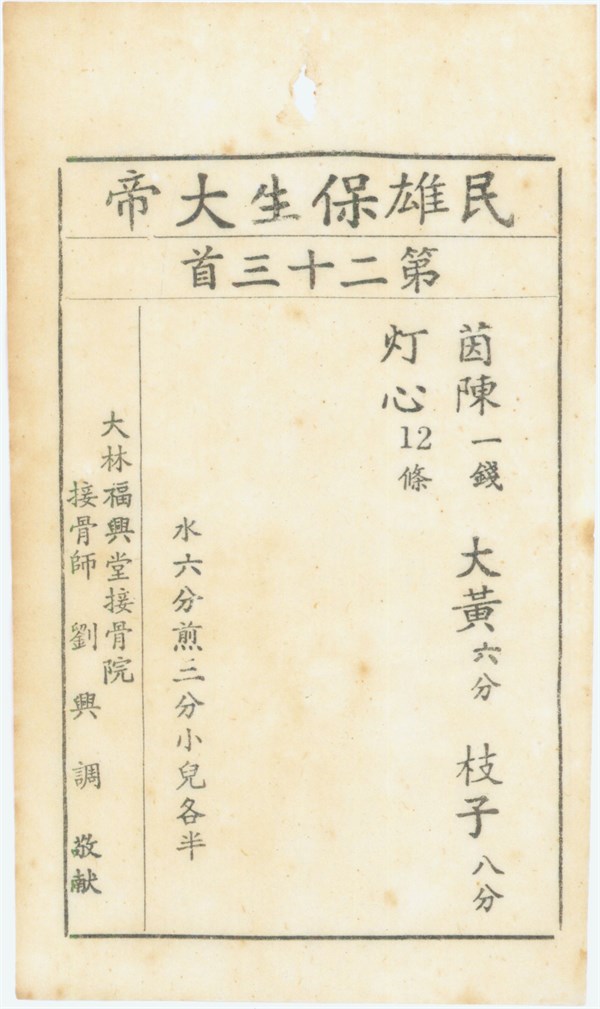 民雄保生大帝
第二十三首
茵陳一錢 大黃六分 枝子八分
灯心12條
水六分煎三分小兒各半
大林福興堂接骨院
接骨師 劉興調 敬献